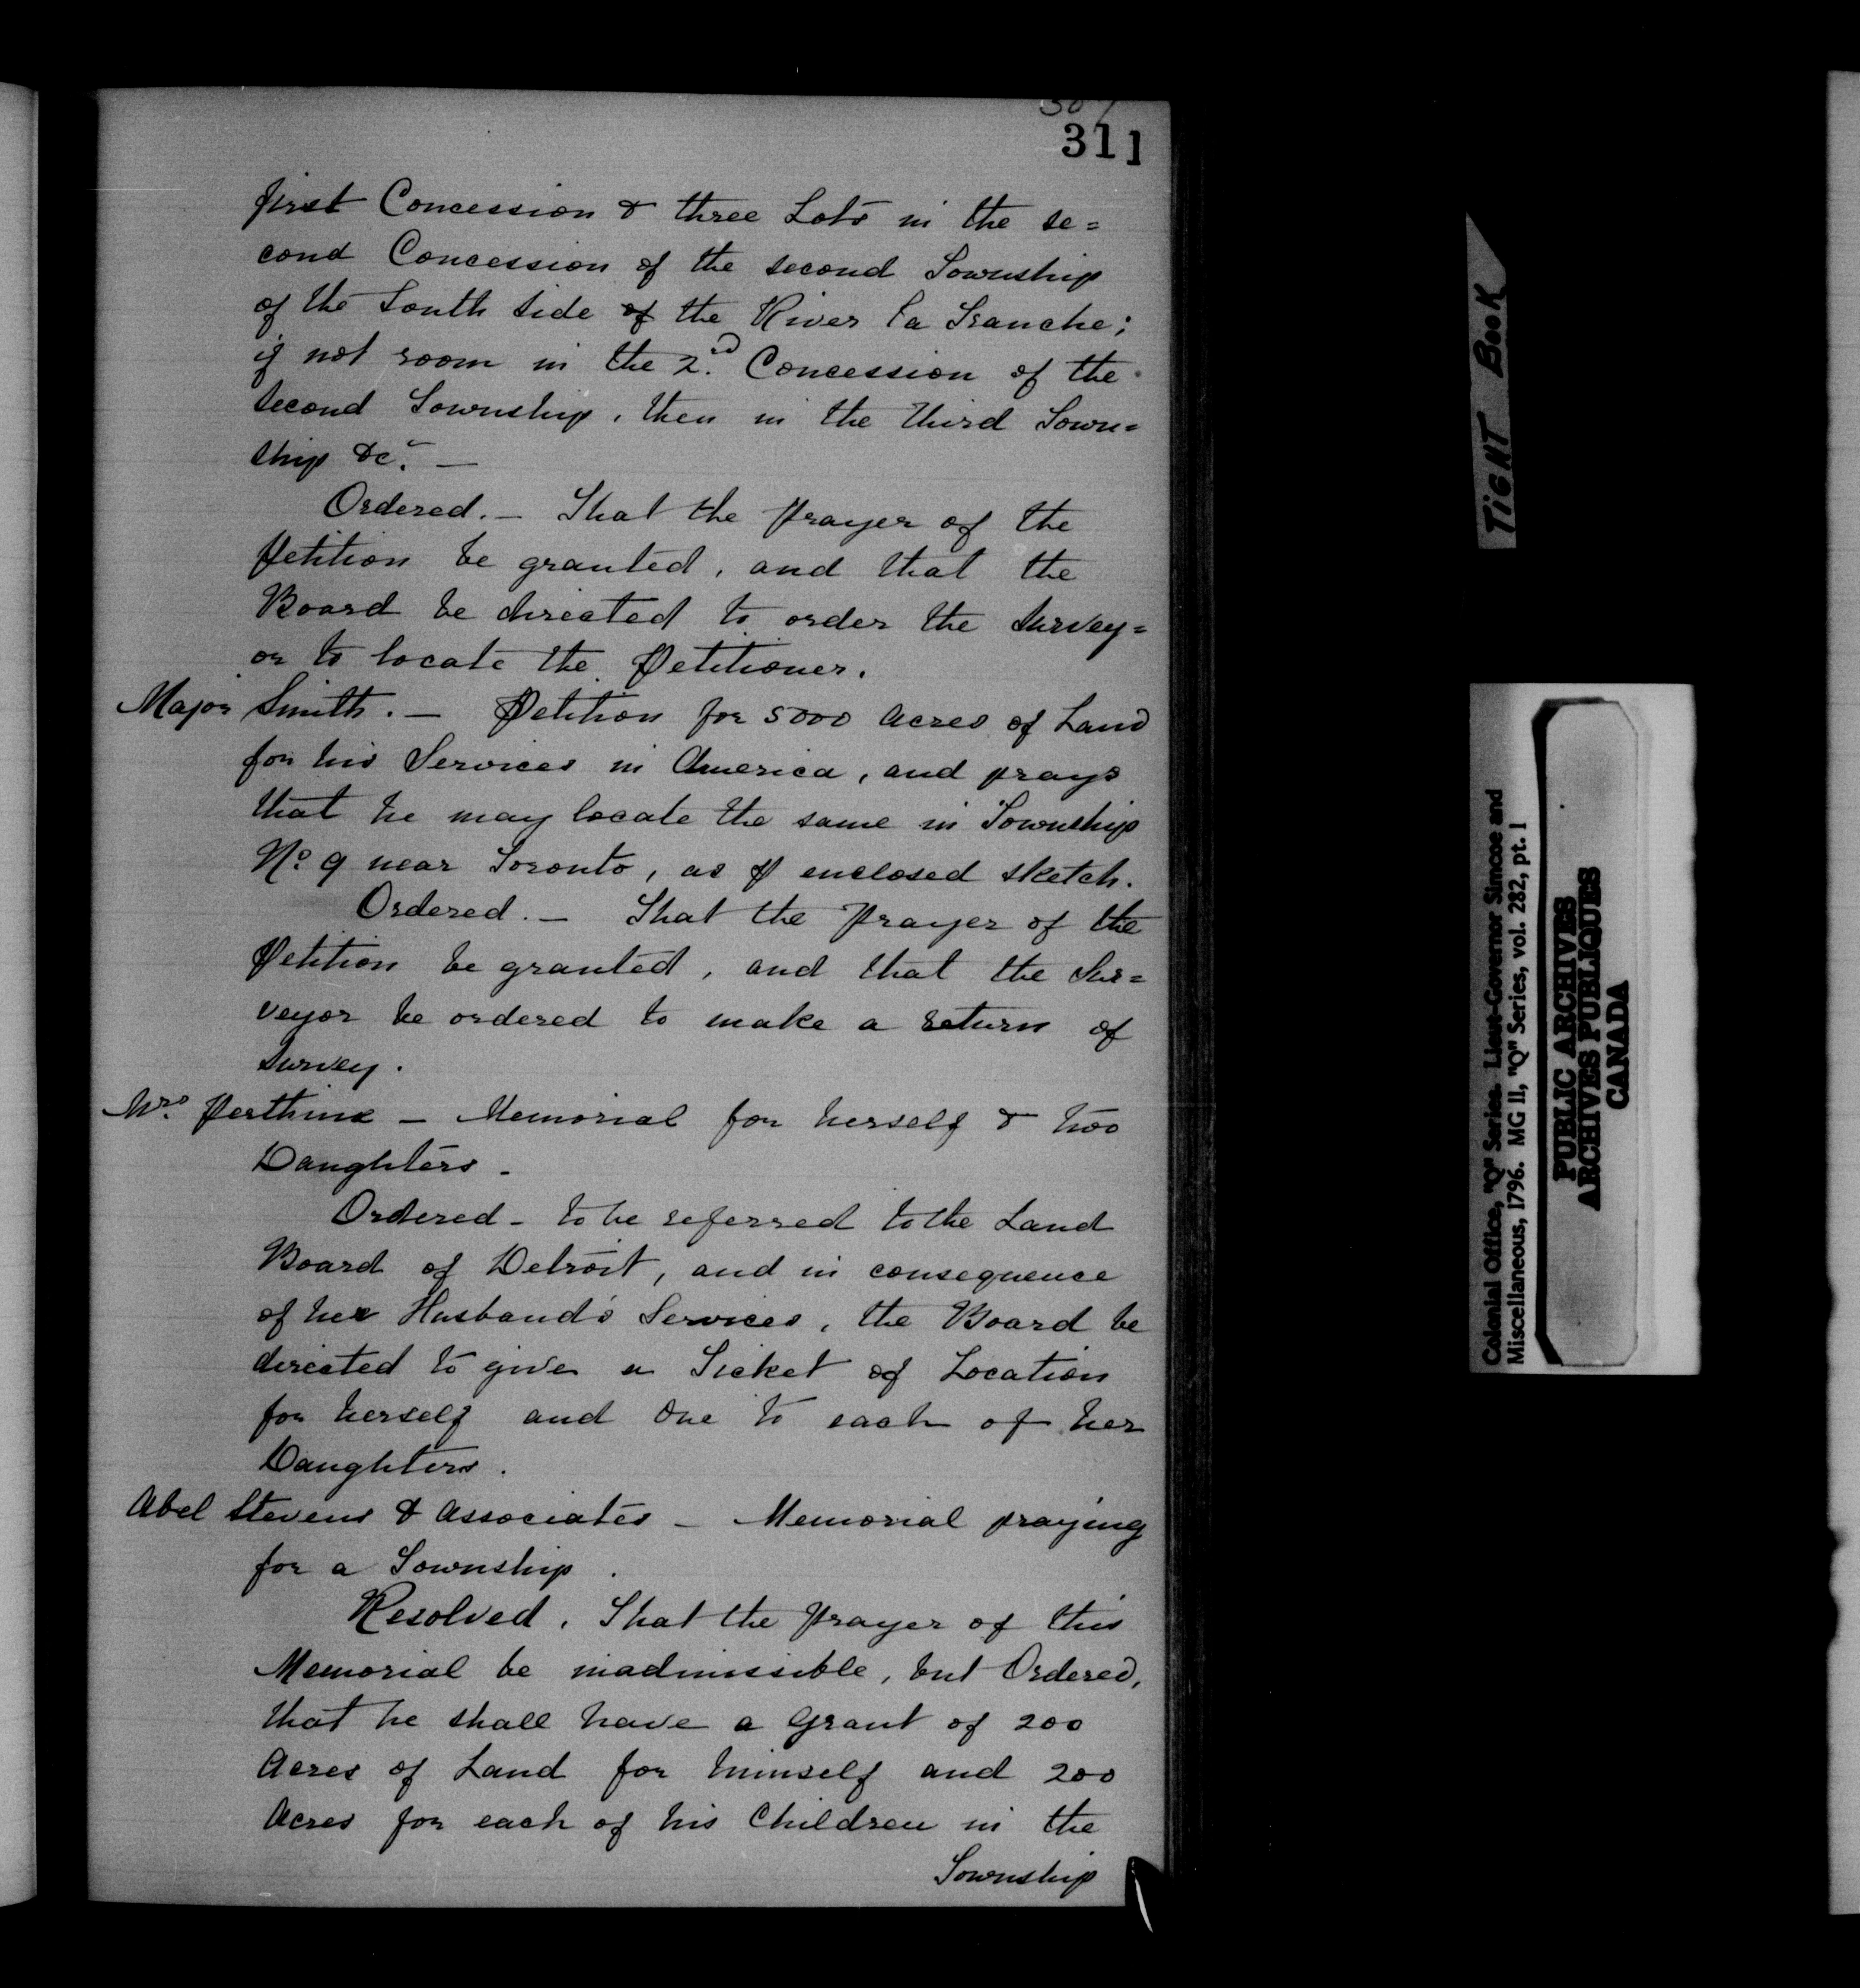 307
311
first Concession & three Lots in the se=
cond Concession of the second Township
of the South side of the River la Tranche;
if not room in the 2.nd Concession of the
second Township, then in the third Town=
ship &c. —
Ordered. — That the Prayer of the
Petition be granted, and that the
Board be directed to order the Survey=
or to locate the Petitioner.
Major Smith. — Petition for 5000 Acres of Land
for his Services in America, and prays
that he may locate the same in Township
No. 9 near Toronto, as P enclosed sketch.
Ordered. — That the Prayer of the
Petition be granted, and that the Sur=
veyor be ordered to make a return of
Survey.
Mrs. — Memorial for herself & two
Daughters.
Ordered — to be referred to the Land
Board of Detroit, and in consequence
of her Husband's Services, the Board be
directed to give a Ticket of Location
for herself and One to each of her
Daughters.
Abel Stevens & Associates — Memorial praying
for a Township.
Resolved, That the Prayer of this
Memorial be inadmissible, but Ordered,
that he shall have a Grant of 200
Acres of Land for himself and 200
Acres for each of his Children in the
Township
TIGHT BOOK
Colonial Office, "Q" Series. Lieut-Governor Simcoe and
Miscellaneous, 1796. MG 11, "Q" Series, vol. 282, pt. 1
PUBLIC ARCHIVES
ARCHIVES PUBLIQUES
CANADA